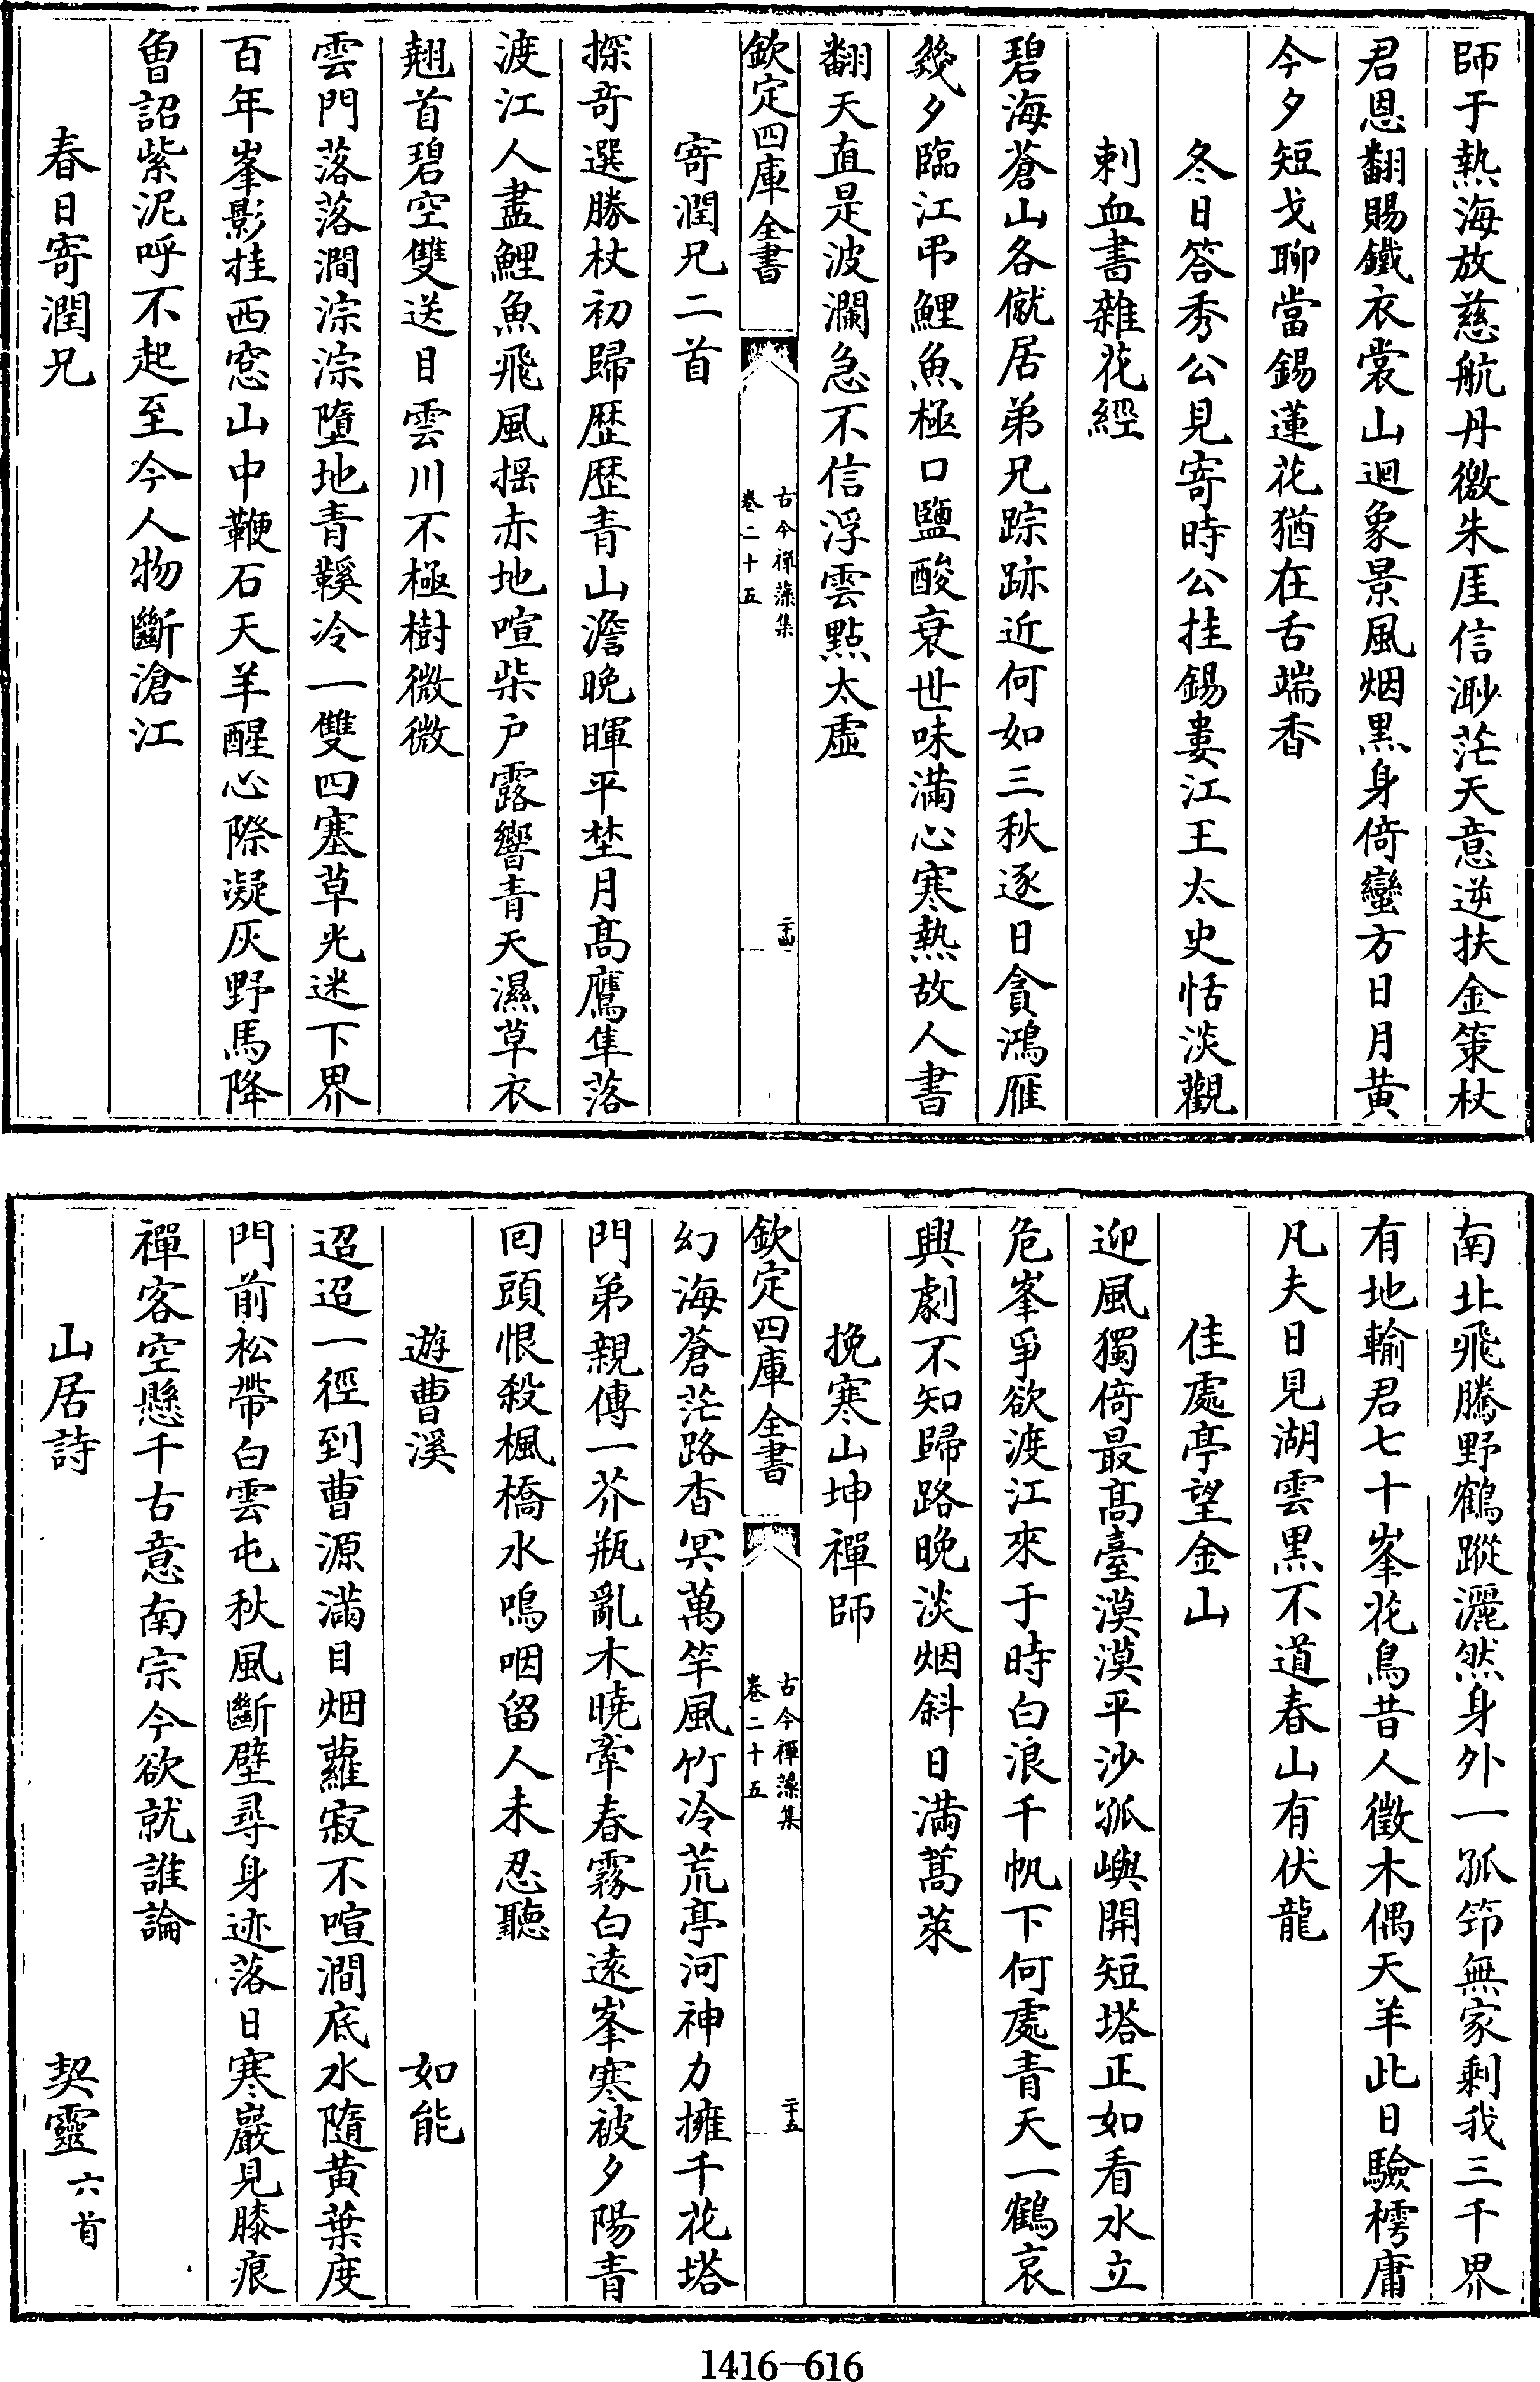 師于熱海放慈航丹徼朱厓信渺茫天意逆扶金策杖
君恩翻賜鐵衣裳山迴象景風烟黒身倚蠻方日月黄
今夕短戈聊當錫蓮花猶在舌端香
冬日答秀公見寄時公挂錫婁江王太史恬淡觀
刺血書雜花經
碧海蒼山各僦居弟兄踪跡近何如三秋逐日貪鴻雁
幾夕臨江弔鯉魚極口鹽酸衰世味滿心寒熱故人書
翻天直是波瀾急不信浮雲點太虛
欽定四庫全書
古今禪藻集
卷二十五
二十四
寄潤兄二首
探竒選勝杖初歸歴歴青山澹晚暉平埜月髙鷹隼落
渡江人盡鯉魚飛風揺赤地喧柴户露響青天濕草衣
翹首碧空雙送目雲川不極樹微微
雲門落落澗淙淙墮地青鞵冷一雙四塞草光迷下界
百年峯影挂西窓山中鞭石天羊醒心際凝灰野馬降
曾詔紫泥呼不起至今人物斷滄江
春日寄潤兄
南北飛騰野鶴蹤灑然身外一孤笻無家剩我三千界
有地輸君七十峯花鳥昔人徵木偶天羊此日驗樗庸
凡夫日見湖雲黒不道春山有伏龍
佳處亭望金山
迎風獨倚最髙臺漠漠平沙孤嶼開短塔正如看水立
危峯爭欲渡江來于時白浪千帆下何處青天一鶴哀
興劇不知歸路晚淡烟斜日滿蒿萊
挽寒山坤禪師
欽定四庫全書
古今禪藻集
卷二十五
二十五
幻海蒼茫路杳冥萬竿風竹冷荒亭河神力擁千花塔
門弟親傳一芥瓶亂木曉牽春霧白逺峯寒被夕陽青
回頭恨殺楓橋水鳴咽留人未忍聽
遊曹溪　如能
迢迢一徑到曹源滿目烟蘿寂不喧澗底水隨黄葉度
門前松帶白雲屯秋風斷壁尋身迹落日寒巖見膝痕
禪客空懸千古意南宗今欲就誰論
山居詩　契靈六首
1416-616